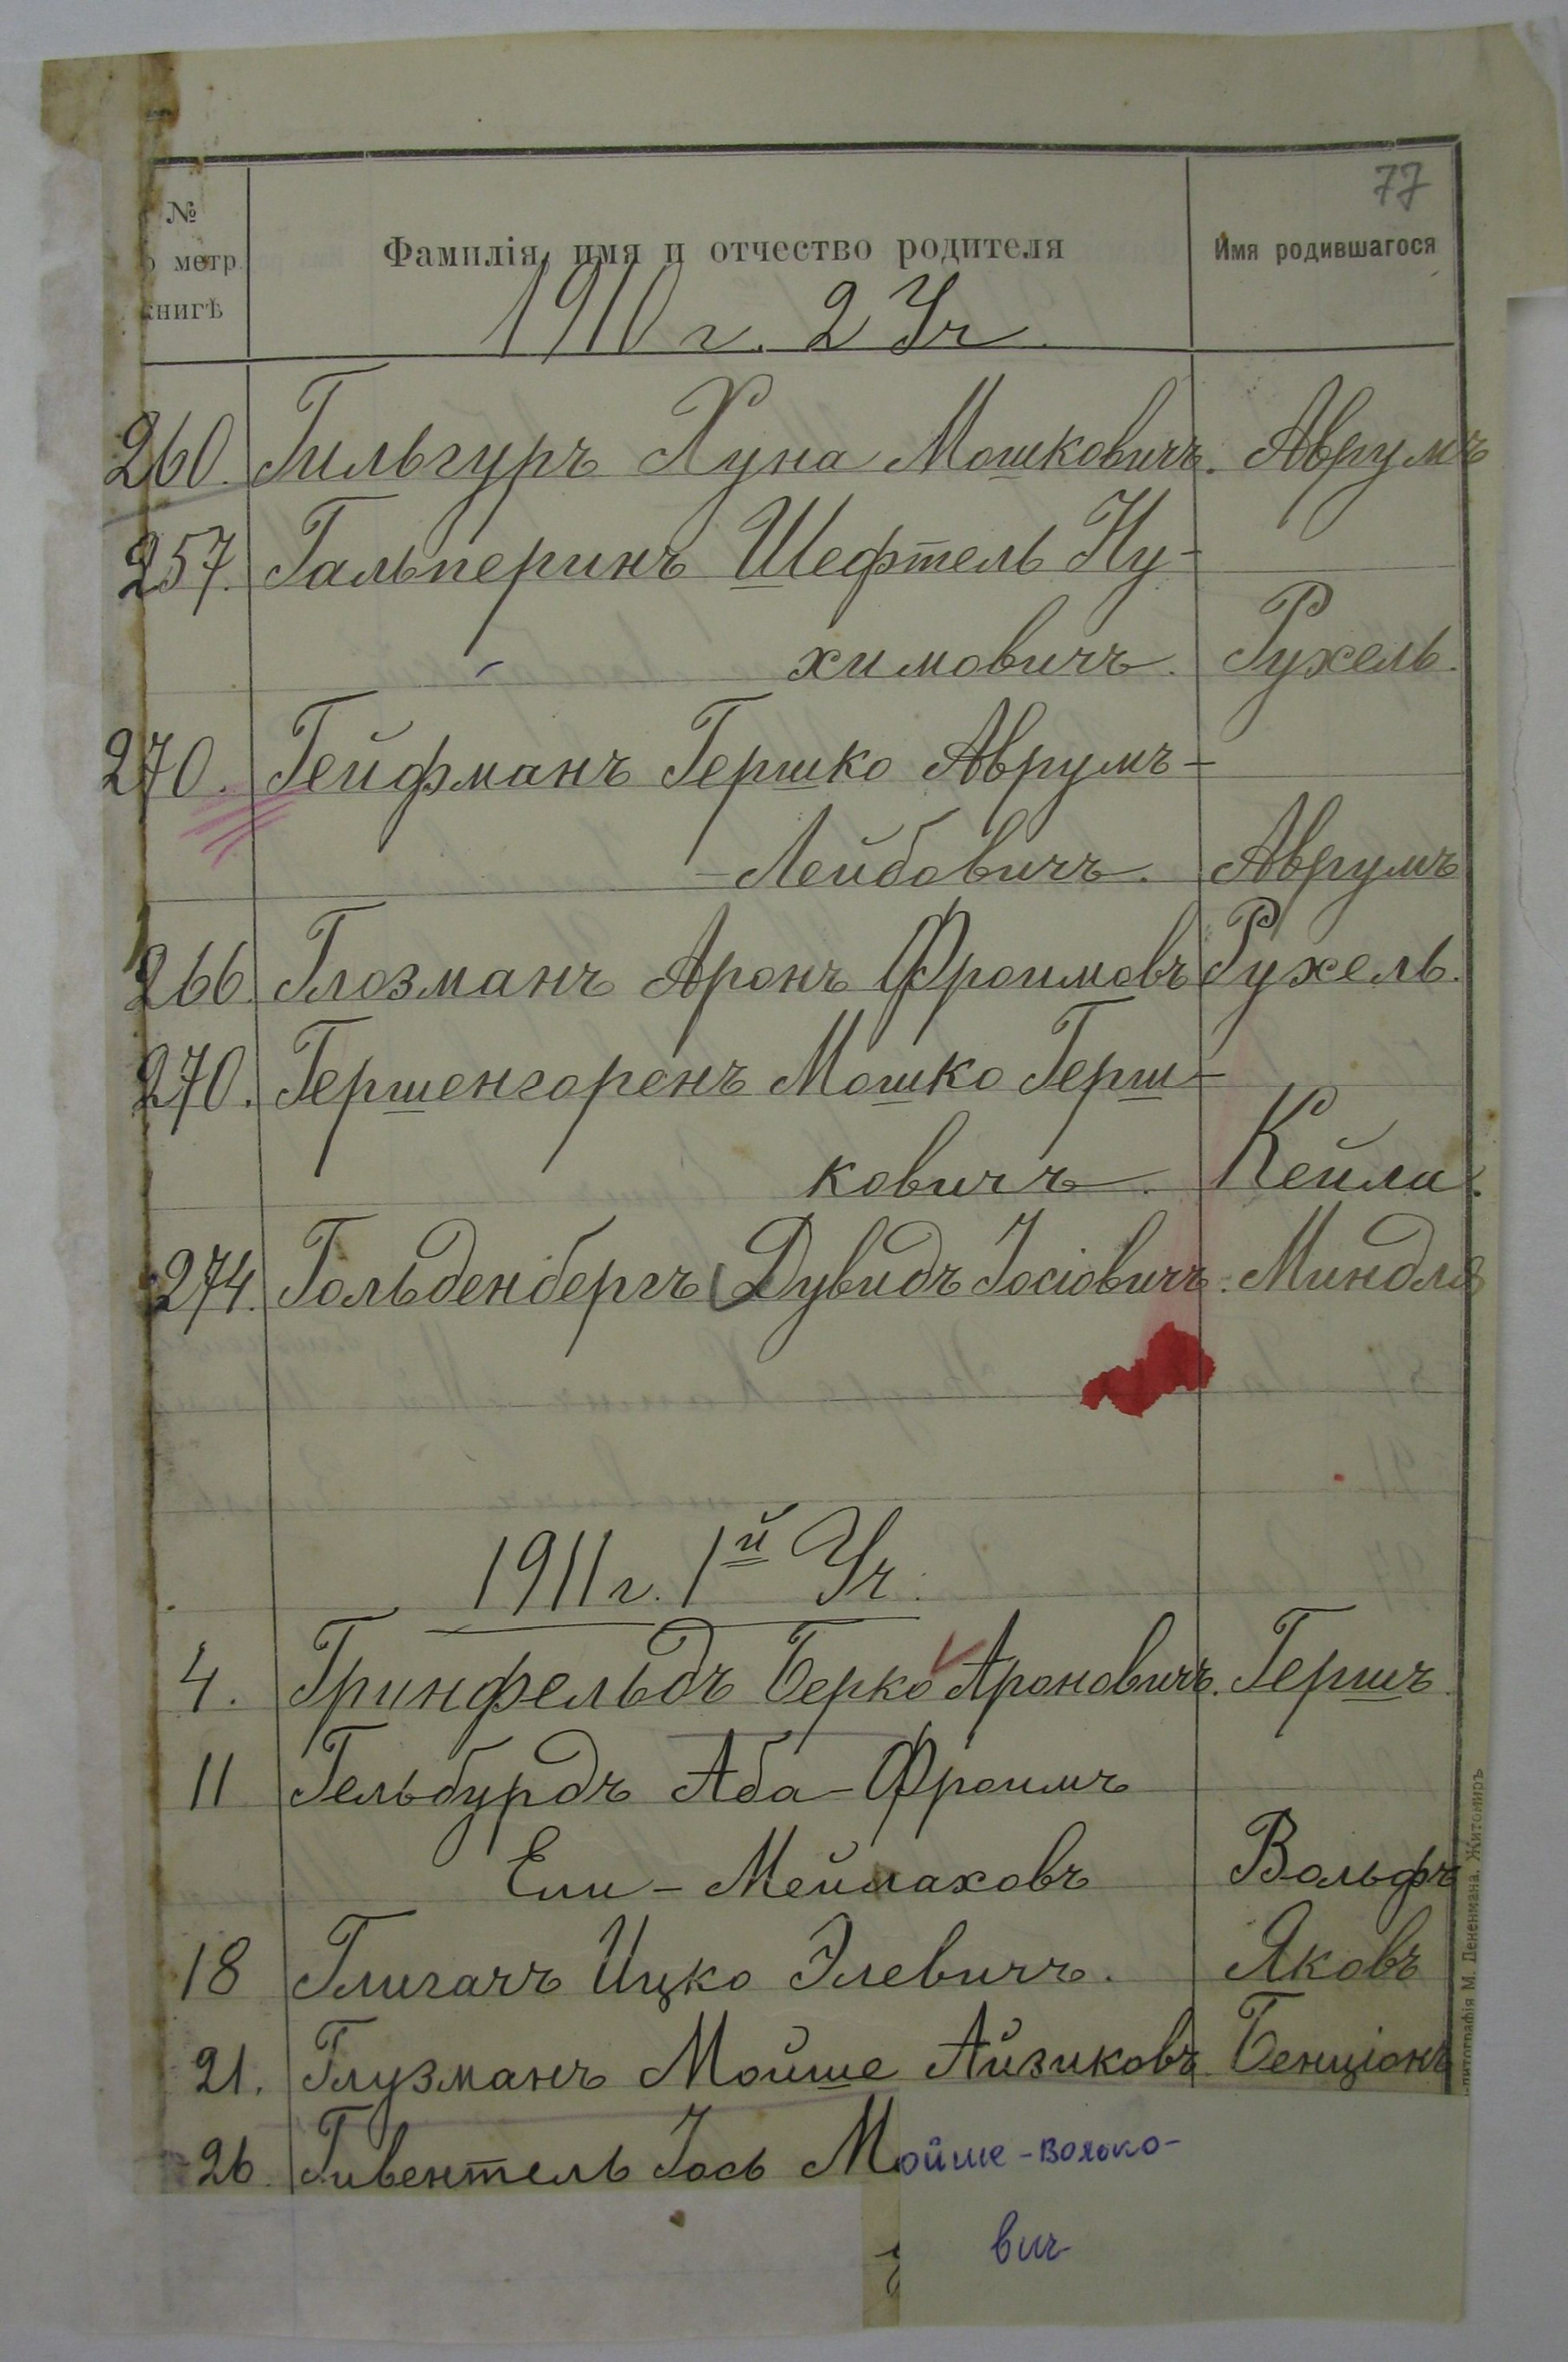 77
№
по метр.
книгѣ
Фамилія, имя и отчество родителя
Имя родившагося
1910 г. 2 Уч.
260. Гильгуръ Хуна Мошковичъ. Аврумъ
257. Гальперинъ Шефтель Ну-
химовичъ. Рухель.
270. Гейфманъ Гершко Аврумъ-
-Лейбовичъ. Аврумъ
266. Глозманъ Аронъ Фроимовъ Рухель.
270. Гершенгоренъ Мошко Герш-
ковичъ. Кейла.
274. Гольденбергъ Дувидъ Іосіовичъ. Миндля
1911 г. 1й Уч.
4. Гринфельдъ Берко Ароновичъ. Гершъ.
11 Гельбурдъ Аба-Фроимъ
Ели-Мейлаховъ Вольфъ
18 Глигачъ Ицко Элевичъ. Яковъ
21. Глузманъ Мойше Айзиковъ Бенціонъ
26 Гивентель Іось Мойше-Волько-
вич
литографія М. Дененмана. Житомиръ